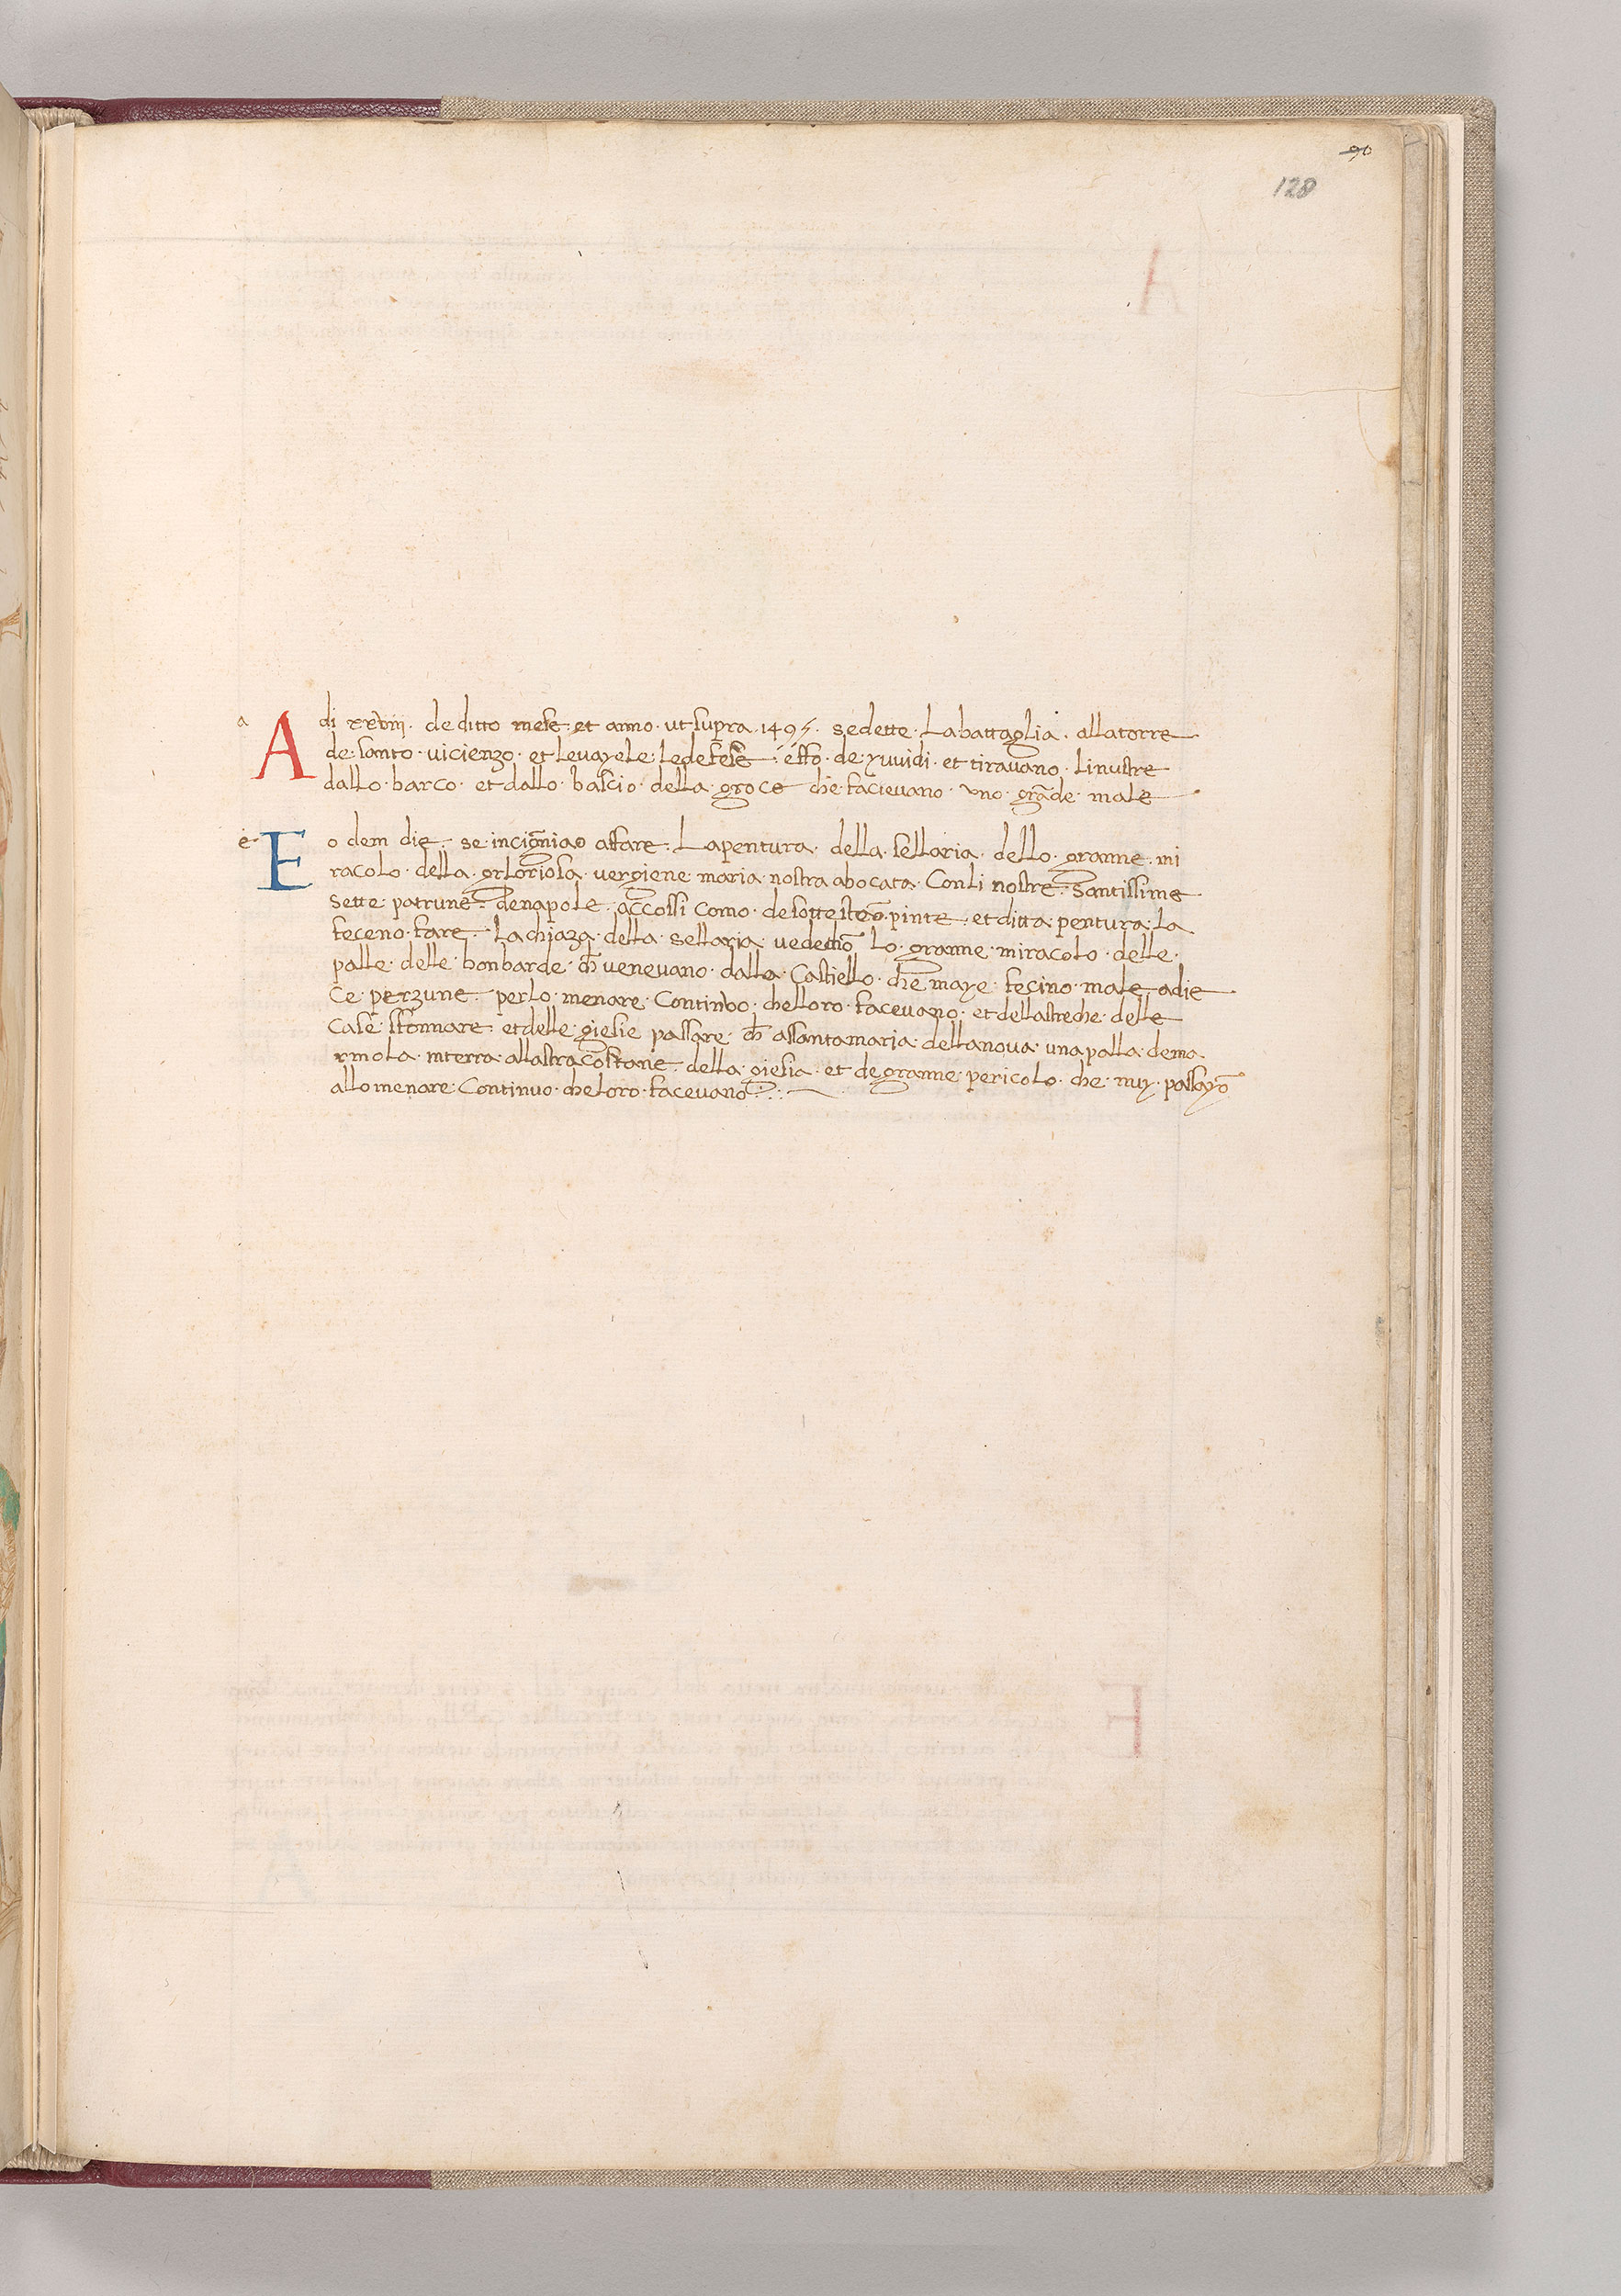 90
128
a
A di xxviii · de ditto mese · et anno · ut supra · 1495 · sedette · Labattaglia · allatorre
de · santo · vicienzo · et levayele · ledefese · de · et tiravano · linustre
dallo · barco · et dallo · bascio · della · groce che · facievano · uno · grāde · male
e
E o dem die · se incigniao affare · Lapentura · della · sellaria · dello · granne · mi
racolo · della · grloriosa · vergiene maria · nostra abocata · Conli nostre · santissime
sette patrune · denapole · accossi como · desotte pinte · et ditta pentura · La
feceno · fare · Lachiaza · della · sellaria · vedeñō Lo · granne · miracolo · delle ·
palle · delle · bonbarde · ch̄ venevano · dallo · Castiello · che maye · fecino · male · adie
ce · perzune · perlo · menare · Continvo · chelloro · facevano · et dellastreche · delle
case sfonnare · et delle · giesie passare · ch̄ assantamaria · dellanova · una palla · dema
rmola · interra · allastracostane · della · giesia · et degranne · pericolo · che · nuy · passayō
allomenare · Continuo · cheloro · facevano